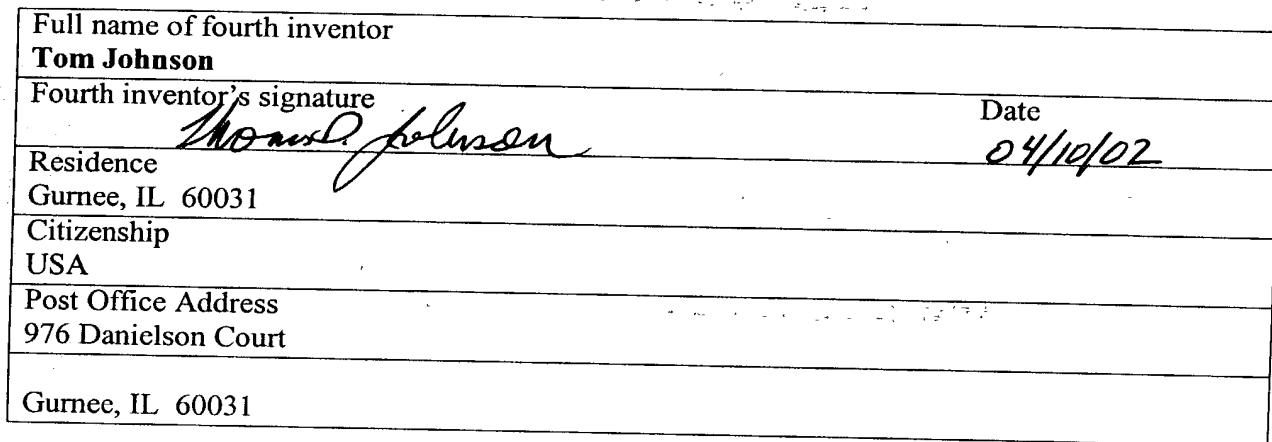 Full name of fourth inventor
Tom Johnson
Fourth inventor's signature Date
Thomas D. Johnson 04/10/02
Residence
Gurnee, IL 60031
Citizenship
USA
Post Office Address
976 Danielson Court
Gurnee, IL 60031